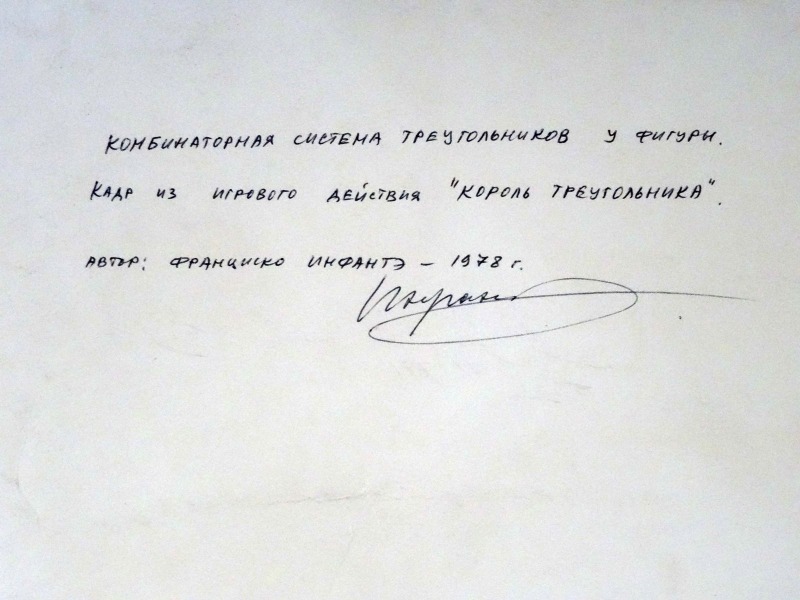 КОМБИНАТОРНАЯ СИСТЕМА ТРЕУГОЛЬНИКОВ У ФИГУРЫ.
КАДР ИЗ ИГРОВОГО ДЕЙСТВИЯ "КОРОЛЬ ТРЕУГОЛЬНИКА".
АВТОР: ФРАНЦИСКО ИНФАНТЭ – 1978 г.